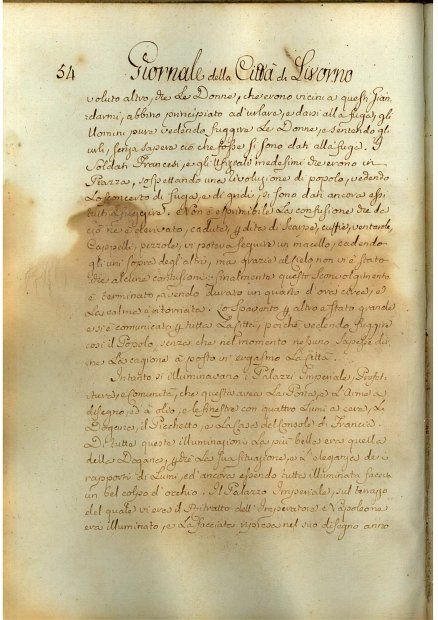 54 Giornale della Città di Livorno
voluto altro, che le Donne, che erono vicini a questi Gian
darmi, abbino principiato ad'urlare, e darsi alla fuga, gli
Uomini pure vedendo fuggire le Donne, e sentendo gli
urli, senza sapere ciò che fosse si sono dati alla fuga. I
Soldati Francesi, e gli Ufiziali medesimi che erono in
Piazza, sospettando una Rivoluzione di popolo, vedendo
lo sconcerto di fuga, e di gridi, si sono dati ancora essi
a fuggire. Non è esprimibile la confusione che da
ciò ne è derivato, cadute, perdita di Scarpe, cuffie, ventarole,
Cappelli, pezzole, vi poteva seguire un macello, cadendo
gli uni sopra degl'altri, ma grazie al Cielo non vi è stato
che alcune contusioni: finalmente questo Sconvolgimento
è terminato, avendo durato un quarto d'ora circa, e
la calma è ritornata. Lo Spavento però altro è stato grande
e si è comunicato per tutta la Città, poichè vedendo fuggire
così il Popolo, senza che nel momento nessuno sapesse di
ne la cagione à posto in orgasmo la Città.
Intanto si illuminavano i Palazzi Imperiale, Prefet
tura, e Comunità, che questa avea la Porta, e l'Arme a
disegno, ed à olio, e le finestre con quattro Lumi a cera, le
Dogane, il Picchetto, e la Casa del Console di Francia.
Di tutte queste illuminazioni la più bella era quella
della Dogana, perchè la sua situazione, e l'eleganza dei
rapporti di Lumi, ed'ancora essendo tutta illuminata faceva
un bel colpo d'occhio. Il Palazzo Imperiale, sul terrazzo
del quale vi era il Ritratto dell'Imperatore Napoleone
era illuminato, e la facciata nel suo disegno anno